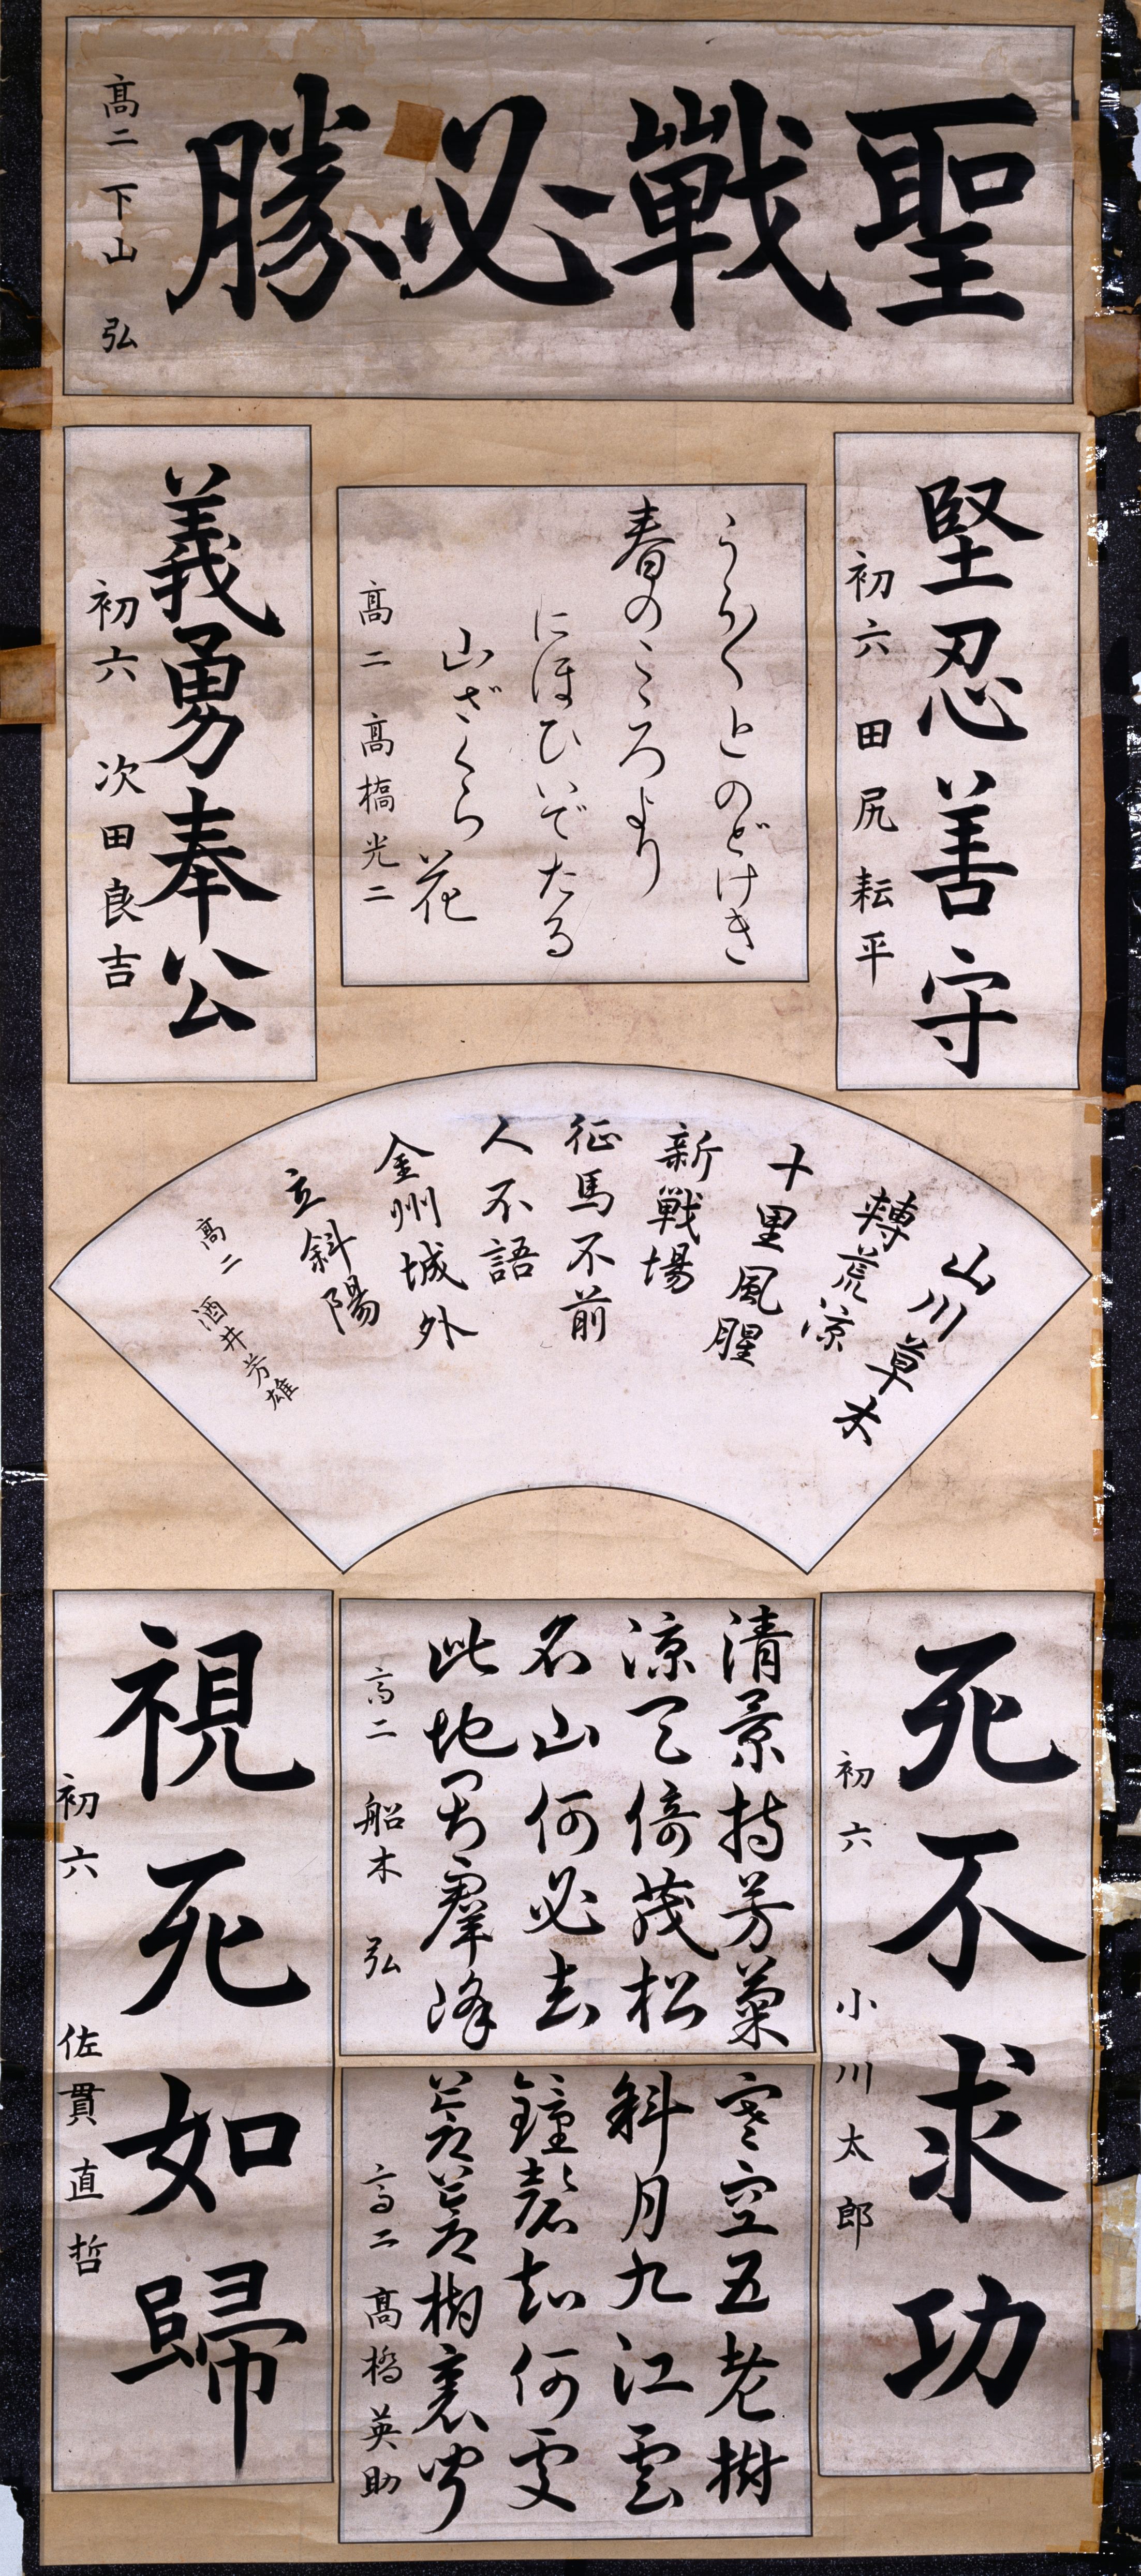 聖戰必勝
髙二 下山 弘
堅忍善守
初六 田尻耘平
うら〱とのどけき
春のこゝろより
にほひいでたる
山ざくら花
髙二 髙橋光二
義勇奉公
初六 次田良吉
山川草木
轉荒凉
十里風腥
新戦場
征馬不前
人不語
金州城外
立斜陽
髙二 酒井芳雄
死不求功
初六 小川太郎
清景持芳菊
涼天倚茂松
名山何必去
此地有羣峰
高二 船木 弘
寒空五老樹
斜月九江雲
鐘聲知何處
蒼蒼樹裏聞
高二 髙橋英助
視死如歸
初六 佐貫直哲